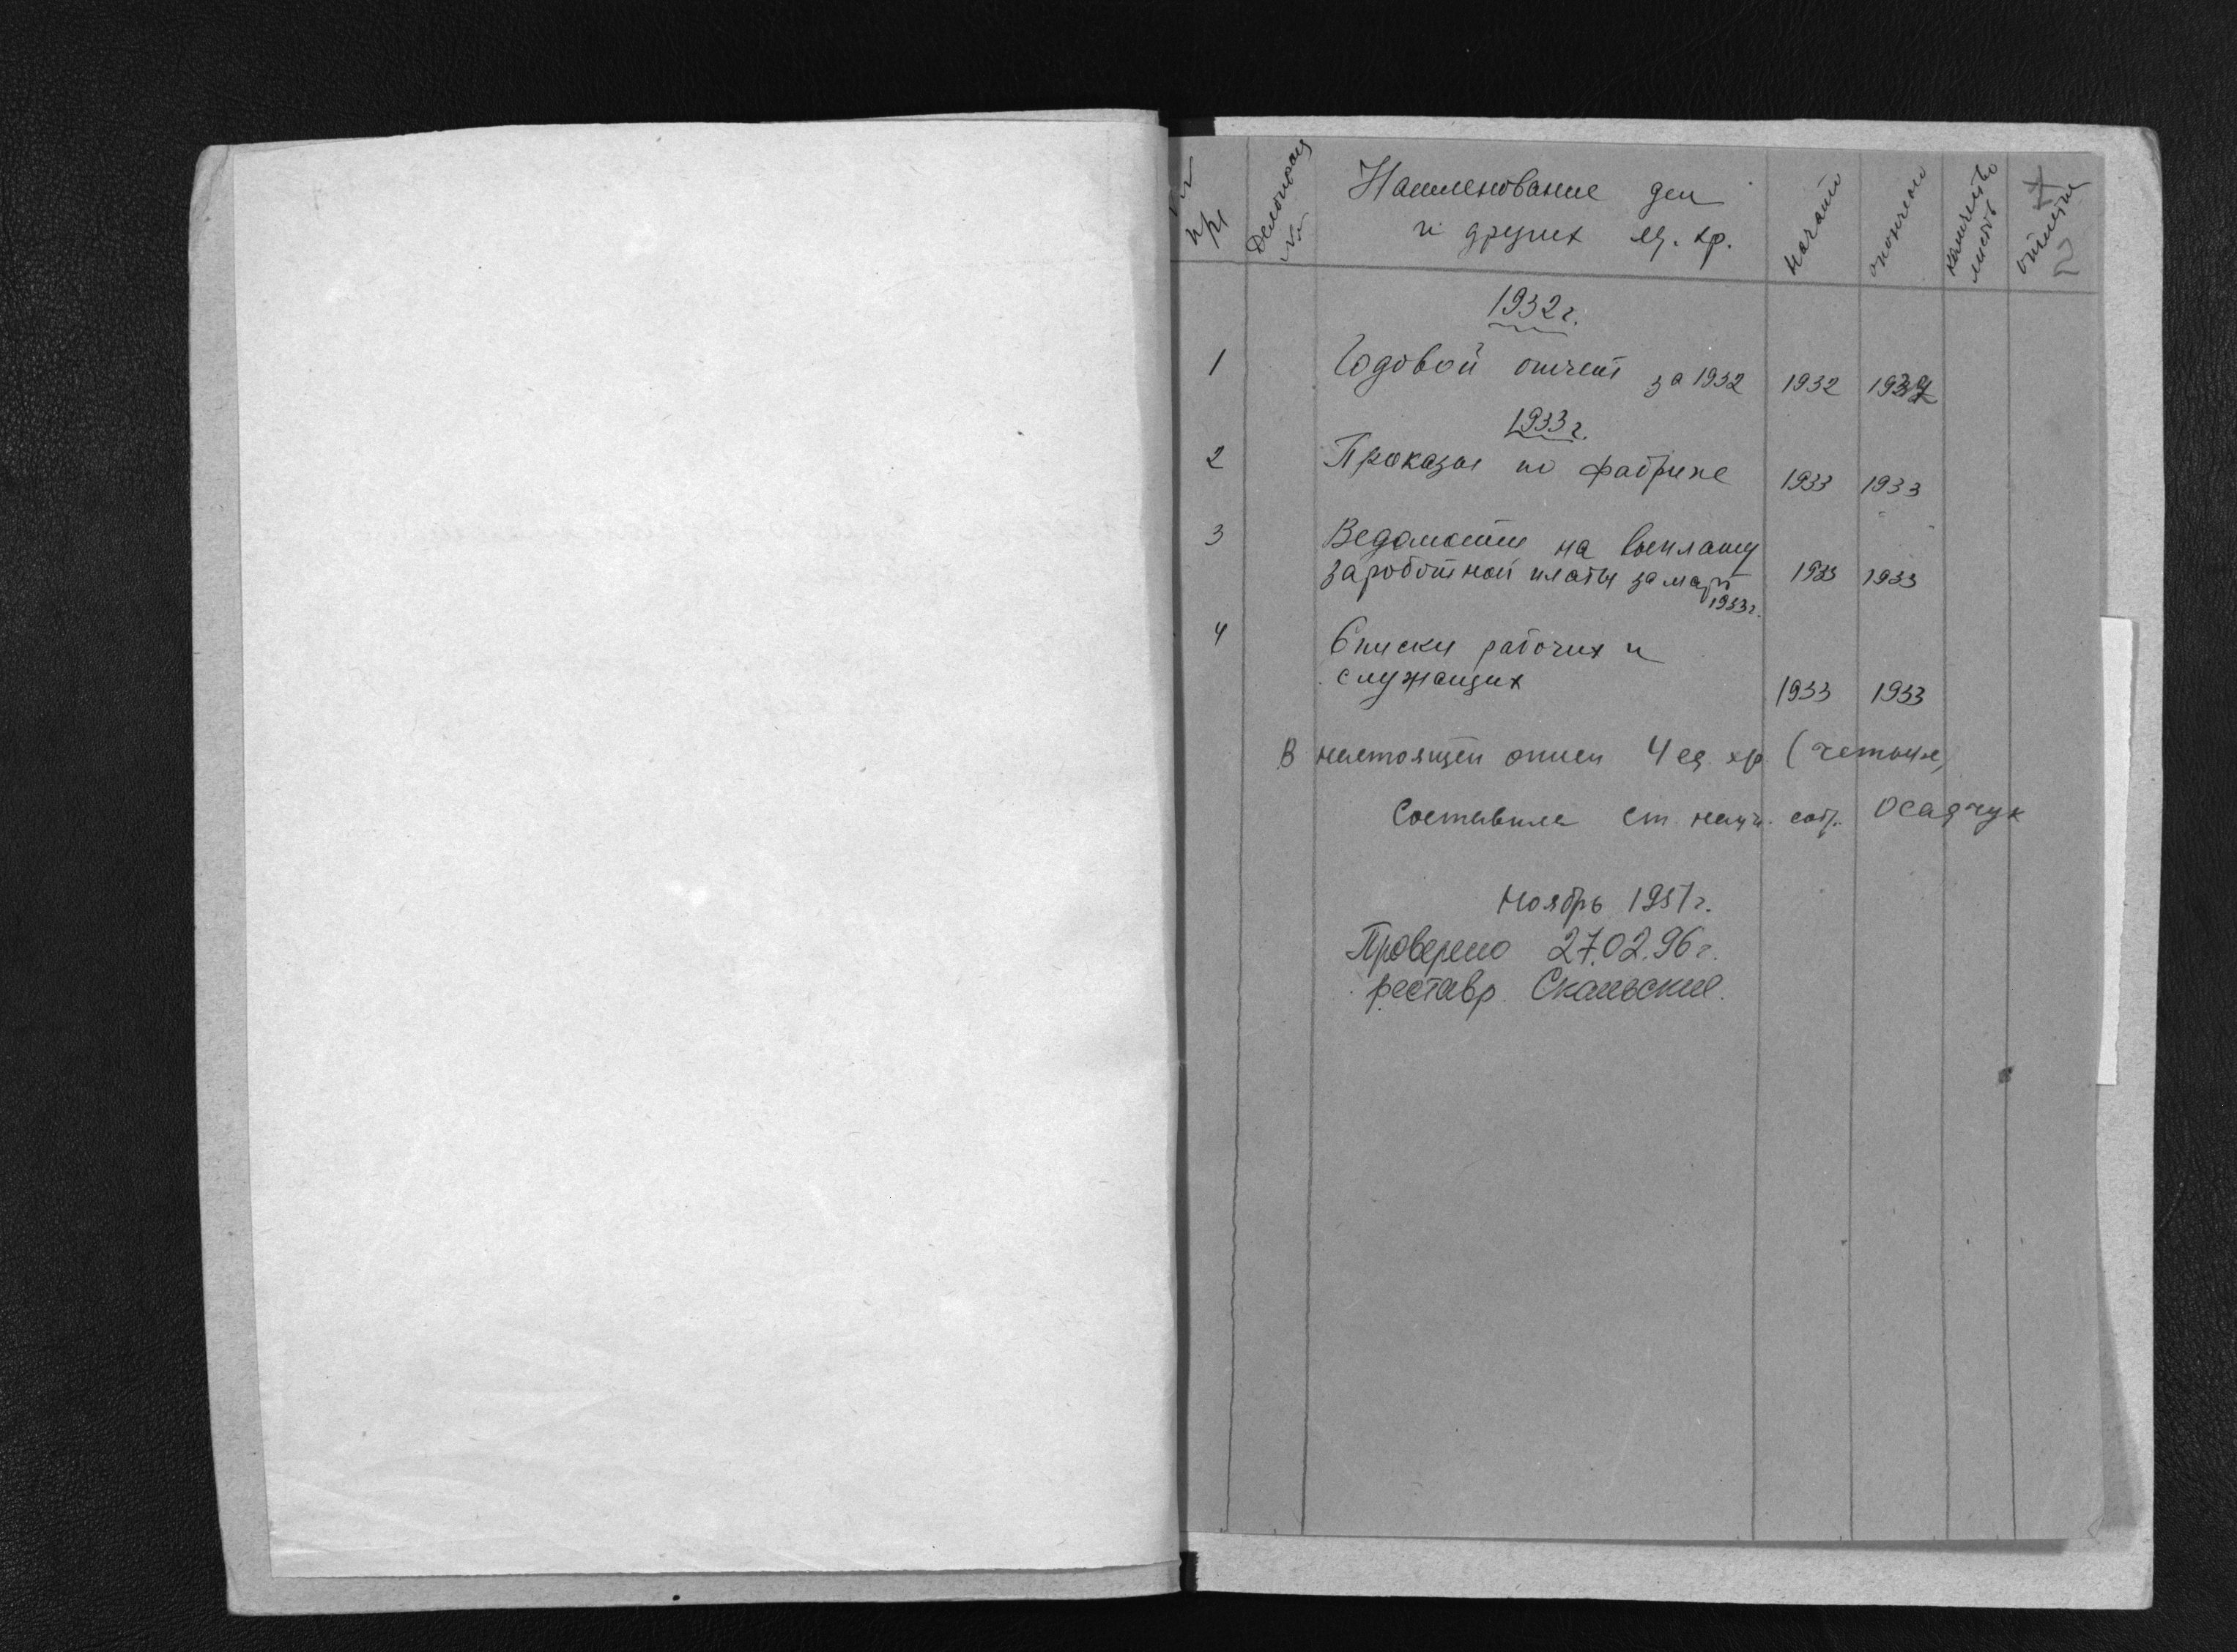 №№ п/п
Делопроизв. №
Наименование дел
и других ед. хр.
начато
окончено
количество листов
отметки
2
1932 г.
1 Годовой отчет за 1932 1932
1933 г.
2 Приказы по фабрике 1933 1933
3 Ведомости на выплату
заработной платы за март 1933 1933
1933 г.
4 Списки рабочих и
служащих 1933 1933
В настоящей описи 4 ед. хр. (четыре)
Составила ст. научн. сотр. Осадчук
Ноябрь 1951 г.
Проверено 27.02.96 г.
реставр.